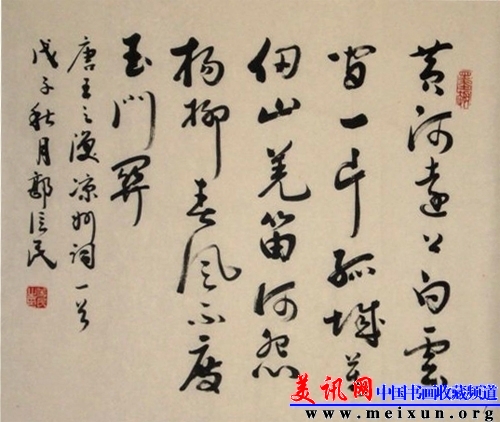 黄河遠上白雲
間一片孤城萬
仞山羌笛何怨
楊柳春風不度
玉門關
唐王之渙凉州詞一首
戊子秋月郭信民
美讯网中国书画收藏频道
www.meixun.org